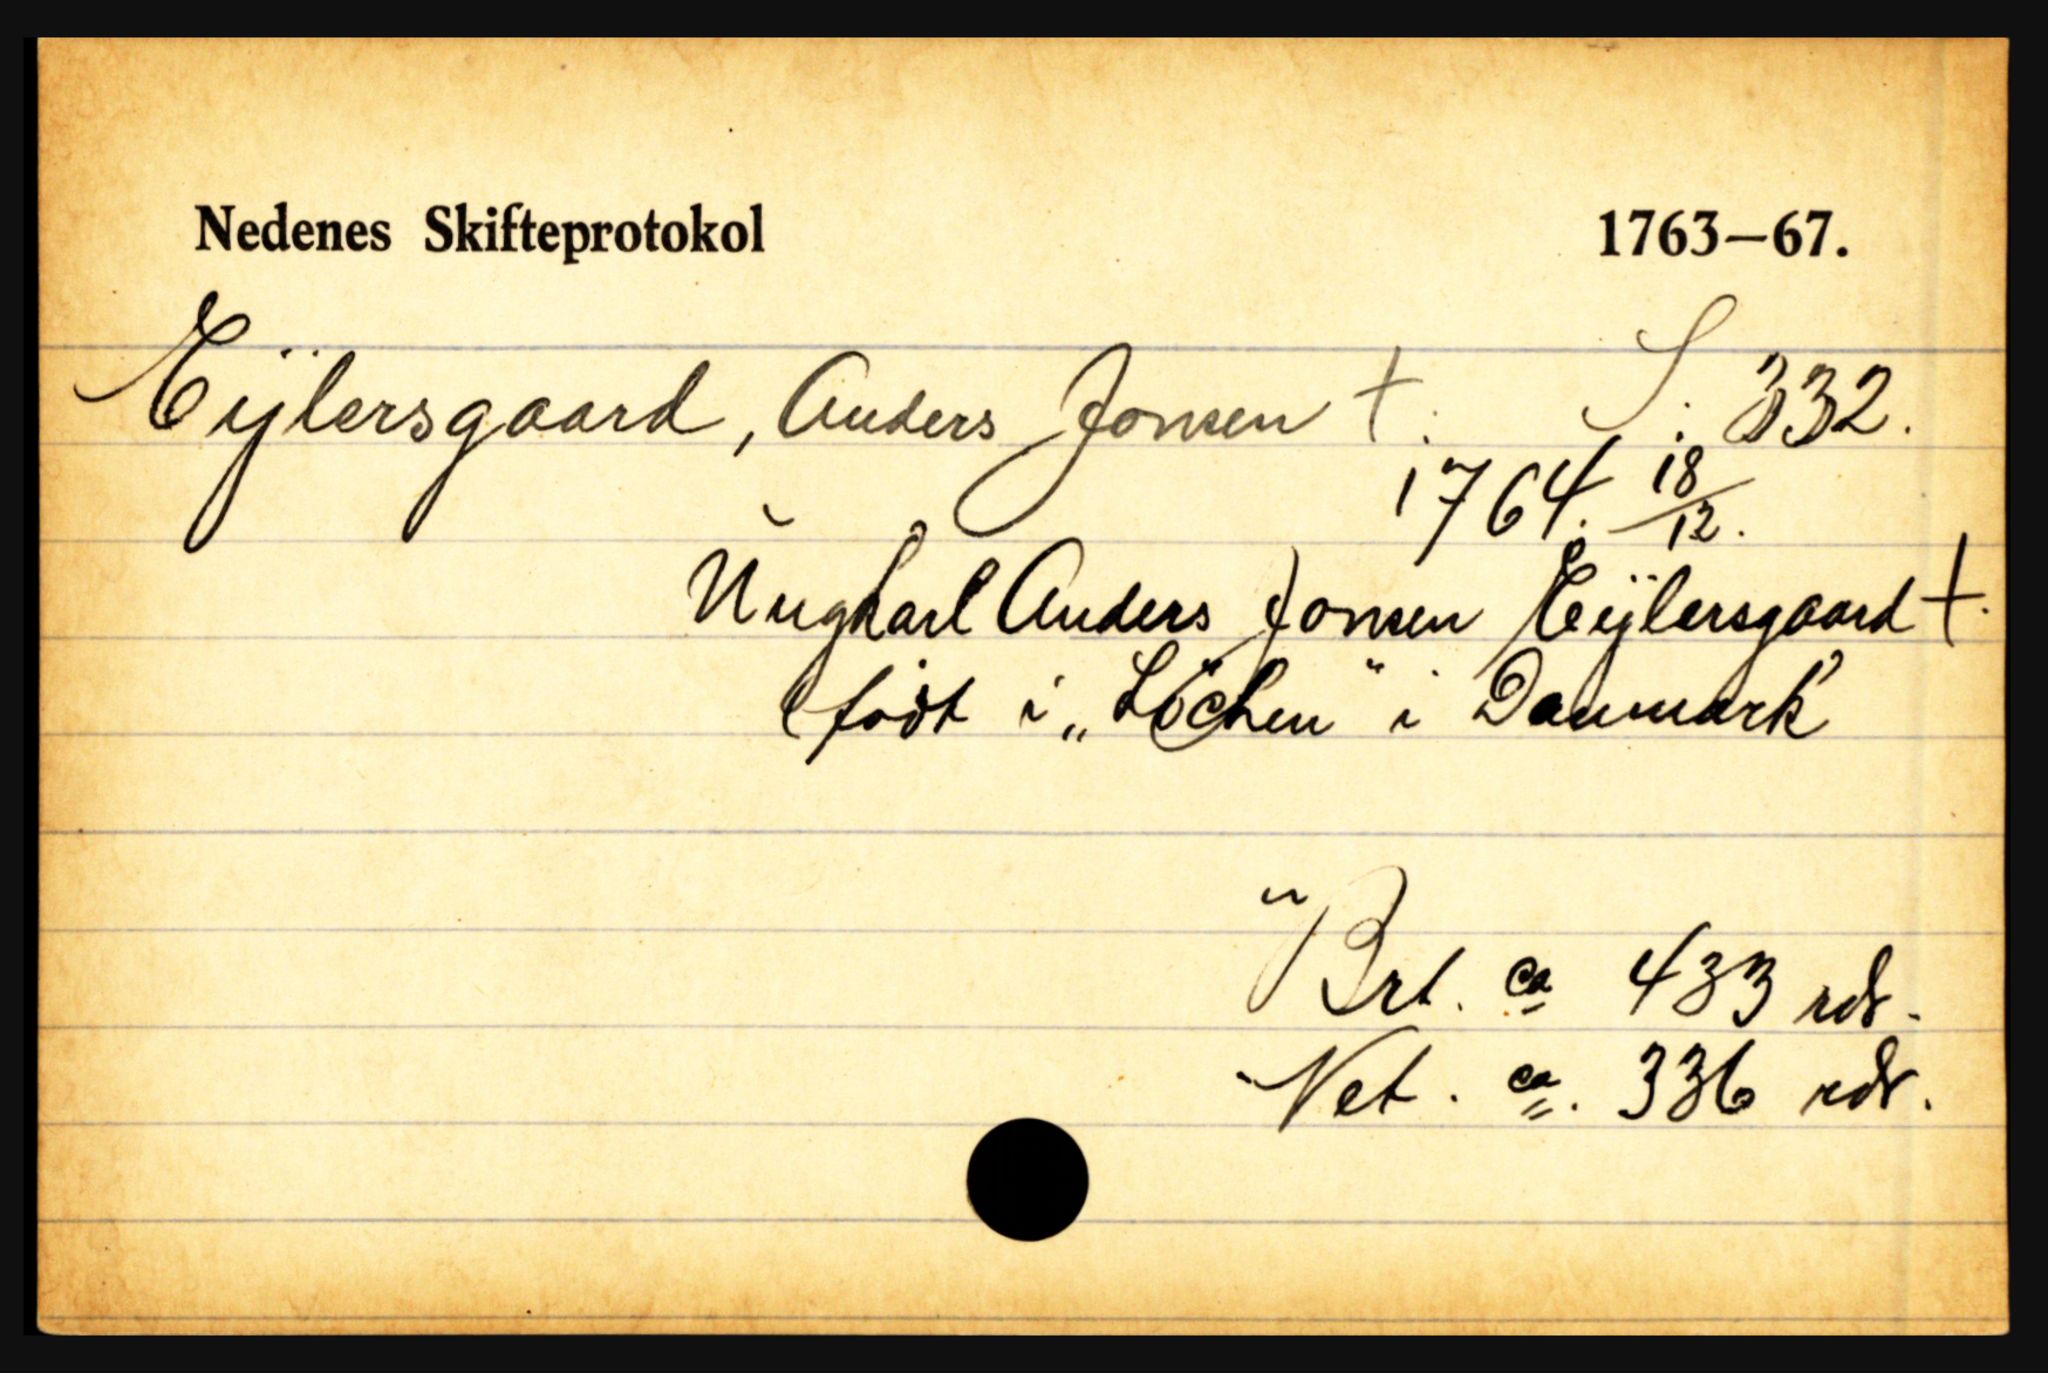 Nedenes Skifteprotokol 1763–67.
Eijlersgaard, Anders Jonsen †. S. 332.
1764. 18/12.
Ungkarl Anders Jonsen Eijlersgaard †.
født i „Löchen" i Danmark
Brt. ca 433 rdr.
Net. ca. 336 rdr.